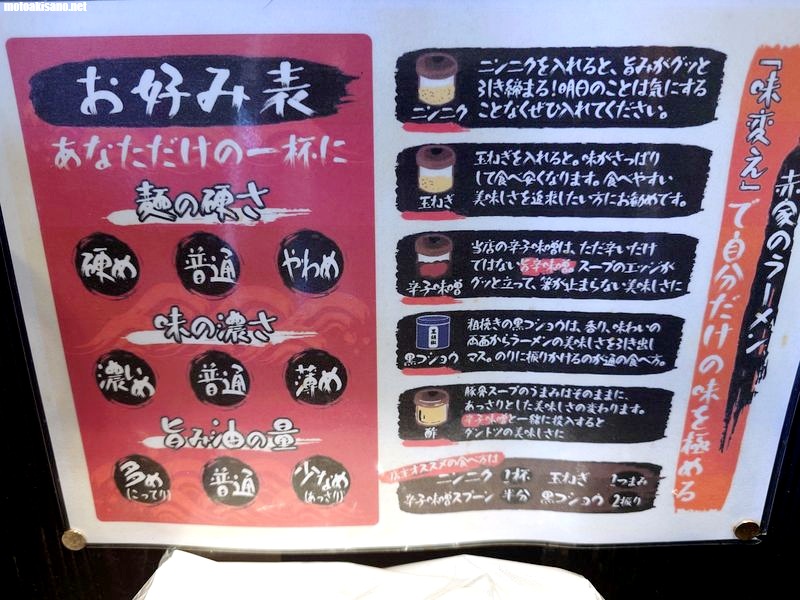 motoakisano.net
お好み表
あなただけの一杯に
麺の硬さ
硬め 普通 やわめ
味の濃さ
濃いめ 普通 薄め
旨み油の量
多め(こってり) 普通 少なめ(あっさり)
ニンニク
ニンニクを入れると、旨みがグッと
引き締まる!明日のことは気にする
ことなくぜひ入れてください。
玉ねぎ
玉ねぎを入れると。味がさっぱり
して食べ安くなります。食べやすい
美味しさを追求したい方にお勧めです。
辛子味噌
当店の辛子味噌は、ただ辛いだけ
ではない旨辛味噌スープのエッジが
グッと立って、箸が止まらない美味しさに
黒コショウ
粗挽きの黒コショウは、香り、味わいの
両面からラーメンの美味しさを引き出し
マス。のりに振りかけるのが通の食べ方。
酢
豚骨スープのうまみはそのままに、
あっさりとした美味しさの変わります。
辛子味噌と一緒に投入すると
ダントツの美味しさに
オススメの食べ方は
ニンニク 1杯 玉ねぎ 1つまみ
辛子味噌スプーン 半分 黒コショウ 2振り
赤家のラーメン
「味変え」で自分だけの味を極める